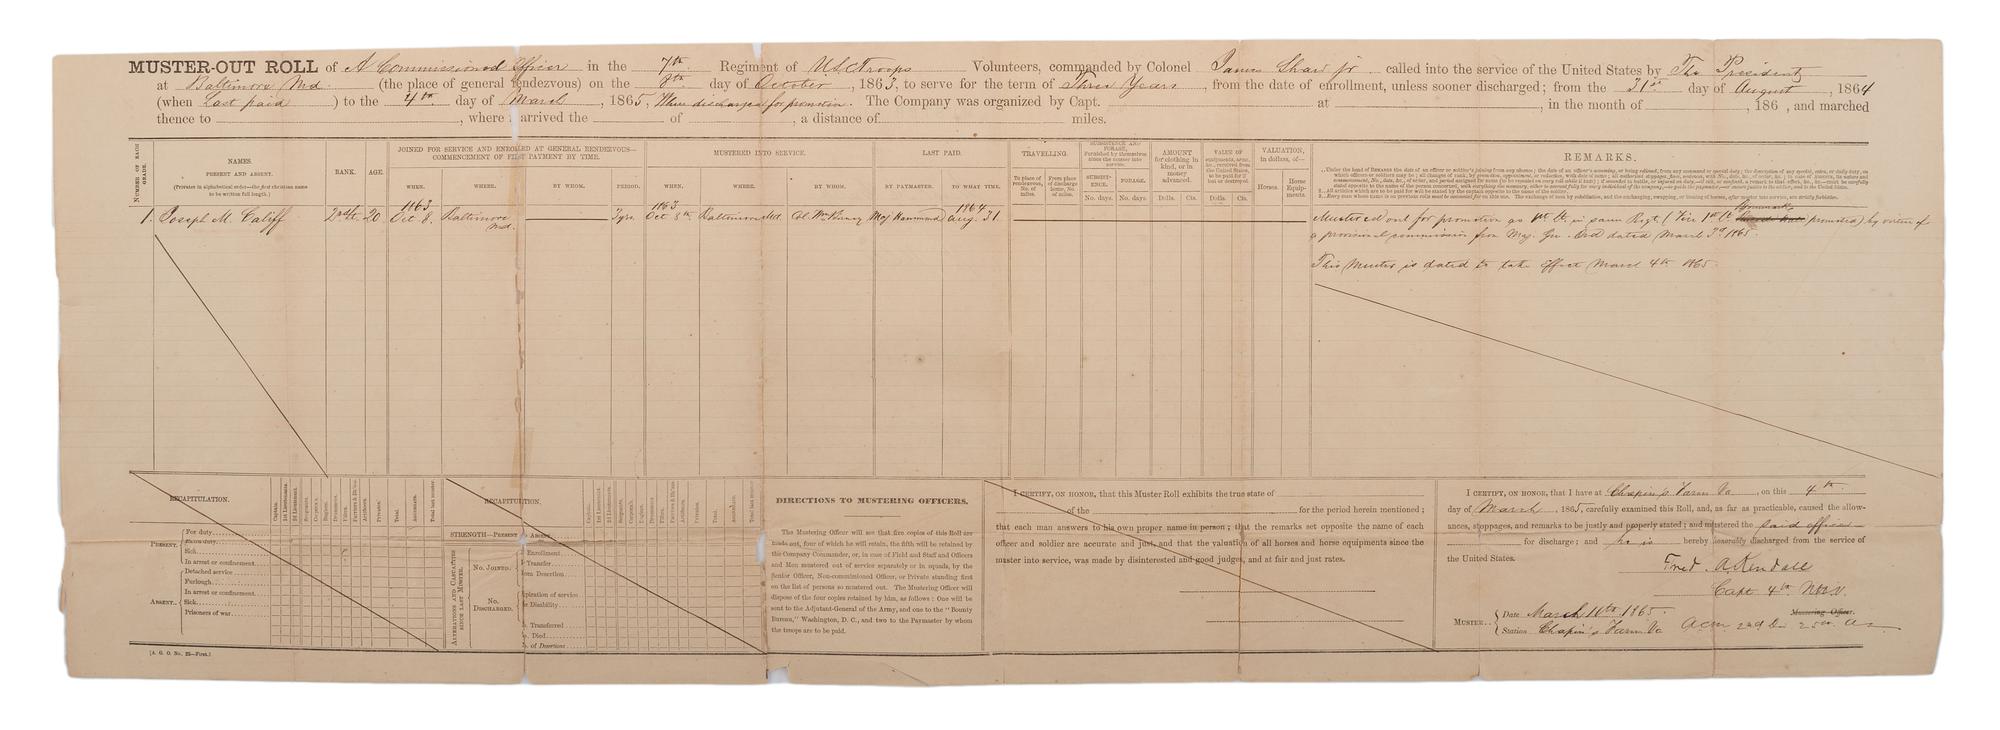 MUSTER-OUT ROLL of A Commissioned Officer in the 7th Regiment of U.S.C. Troops Volunteers, commanded by Colonel James Shaw Jr called into the service of the United States by The President
at Baltimore Md. (the place of general rendezvous) on the 8th day of October, 1863, to serve for the term of Three Years, from the date of enrollment, unless sooner discharged; from the 31st day of August, 1864
(when Last paid) to the 4th day of March, 1865, When discharged for promotion. The Company was organized by Capt. at , in the month of , 186 , and marched
thence to , where it arrived the of , a distance of miles.
NUMBER OF EACH GRADE.
NAMES.
PRESENT AND ABSENT.
(Privates in alphabetical order—the first christian name to be written full length.)
RANK.
AGE.
JOINED FOR SERVICE AND ENROLLED AT GENERAL RENDEZVOUS—
COMMENCEMENT OF FIRST PAYMENT BY TIME.
WHEN. WHERE. BY WHOM. PERIOD.
MUSTERED INTO SERVICE.
WHEN. WHERE. BY WHOM.
LAST PAID.
BY PAYMASTER. TO WHAT TIME.
TRAVELLING.
To place of rendezvous, No. of miles.
From place of discharge home, No. of miles.
SUBSISTENCE AND FORAGE,
Furnished by themselves
SUBSISTENCE. FORAGE.
No. days. No. days.
AMOUNT
for clothing in kind, or in money advanced.
Dolls. Cts.
VALUE OF
equipments, arms, &c., received from the United States, to be paid for if lost or destroyed.
Dolls. Cts.
VALUATION,
in dollars, of—
Horses. Horse Equipments.
REMARKS.
1. Joseph M. Califf 2nd Lt. 20 1863 Oct 8. Baltimore Md. 3 yrs. 1863 Oct 8th Baltimore Md. Maj Hammond 1864 Aug. 31
Mustered out for promotion as 1st Lt. in same Regt. (Vice 1st Lt. promoted) by virtue of
a provisional commission from Maj. Gen. Ord dated March 3d 1865.
This Muster is dated to take effect March 4th 1865.
RECAPITULATION.
Captain.
1st Lieutenants.
2d Lieutenant.
Sergeants.
Corporals.
Bugler.
Drummers.
Fifers.
Farriers & Bl'ks.
Artificers.
Privates.
Total.
Aggregate.
Total last muster.
PRESENT.
For duty
Extra duty
Sick
In arrest or confinement
ABSENT.
Detached service
Furlough
In arrest or confinement
Sick
Prisoners of war
RECAPITULATION.
STRENGTH—PRESENT & ABSENT.
ALTERATIONS AND CASUALTIES SINCE LAST MUSTER.
NO. JOINED.
Enrollment
Transfer
From Desertion
NO. DISCHARGED.
Expiration of service
For Disability
Transferred
Died
No. of Desertions
DIRECTIONS TO MUSTERING OFFICERS.
The Mustering Officer will see that five copies of this Roll are
made out, four of which he will retain, the fifth will be retained by
the Company Commander, or, in case of Field and Staff and Officers
and Men mustered out of service separately or in squads, by the
Senior Officer, Non-commissioned Officer, or Private standing first
on the list of persons so mustered out. The Mustering Officer will
dispose of the four copies retained by him, as follows: One will be
sent to the Adjutant-General of the Army, and one to the "Bounty
Bureau," Washington, D. C., and two to the Paymaster by whom
the troops are to be paid.
I CERTIFY, ON HONOR, that this Muster Roll exhibits the true state of
of the for the period herein mentioned;
that each man answers to his own proper name in person; that the remarks set opposite the name of each
officer and soldier are accurate and just, and that the valuation of all horses and horse equipments since the
muster into service, was made by disinterested and good judges, and at fair and just rates.
I CERTIFY, ON HONOR, that I have at Chapin's Farm Va, on this 4th
day of March, 1865, carefully examined this Roll, and, as far as practicable, caused the allow-
ances, stoppages, and remarks to be justly and properly stated; and mustered the said officer
for discharge; and he is hereby honorably discharged from the service of
the United States.
Fred. A. Kendall
Capt 4th
Mustering Officer.
MUSTER.—
Date March 10th, 1865.
Station Chapin's Farm Va
[A. G. O. No. 25—First.]